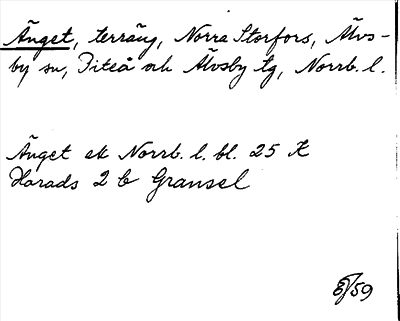 Änget, terräng, Norra Storfors, Älvs-
by sn, Piteå och Älvsby tg, Norrb. l.
Änget ek Norrb. l. bl. 25 K
Harads 2 b Gransel
/59